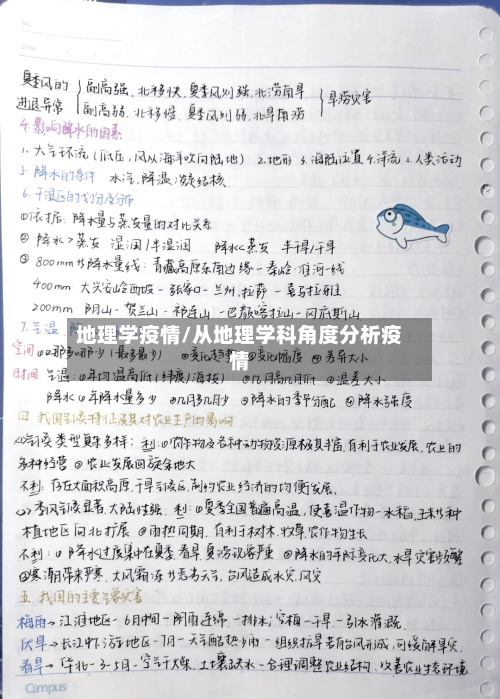 夏季风的
进退异常
副高强,北移快,夏季风则强,北涝南旱
副高弱,北移慢,夏季风则弱,北旱南涝
旱涝灾害
4.影响降水的因素
1.大气环流(低压,风从海洋吹向陆地) 2.地形 3.海陆位置 4.洋流 5.人类活动
5.降水的条件 水汽,降温,凝结核
6.干湿区的划分及分布
①依据:降水量与蒸发量的对比关系
② 降水>蒸发 湿润/半湿润 降水<蒸发 半干旱/干旱
③ 800mm等降水量线:青藏高原东南边缘-秦岭-淮河-线
400mm 大兴安岭西坡-张家口-兰州,拉萨-喜马拉雅
200mm 阴山-贺兰山-祁连山-巴颜喀拉山-冈底斯山
7.气温
地理学疫情/从地理学科角度分析疫
情
空间 ①哪多哪少(最多最少) ④差异大小
时间 气温:①年均温高低(纬度/海拔) ②几月高几月低 ③温差大小
降水①年降水量多少 ②几月多几月少 ③降水的季节分配 ④降水强度
四.我国气候特征及其对农业生产的影响
(1)气候类型复杂多样:利:①农作物及各种动物资源极其丰富,有利于农业发展,农业的
多种经营 ②农业发展回旋余地大
不利:存在大面积高原,干旱气候区,制约农业经济的均衡发展.
(2)季风气候显著,大陆性强. 利:①夏季全国普遍高温,使喜温作物-水稻,玉米等种
植地区向北扩展 ②雨热同期.有利于树木,牧草,农作物生长
不利:①降水过度集中在夏季,春旱,夏涝现象严重 ②降水的年际变化大,水旱灾害频繁
③寒潮带来严寒,大风霜冻等恶劣天气,台风造成水灾,风灾
五.我国的主要气象灾害
梅雨→江淮地区-6月中旬-阴雨连绵-排水;空梅-干旱-引水灌溉.
伏旱→长江中下游地区-7月-天气酷热少雨-组织抗旱若有台风形成,可缓解旱灾.
春旱→华北-3-5月-空气干燥,土壤缺水-合理调整农业结构,改善农业生态环境
Campus